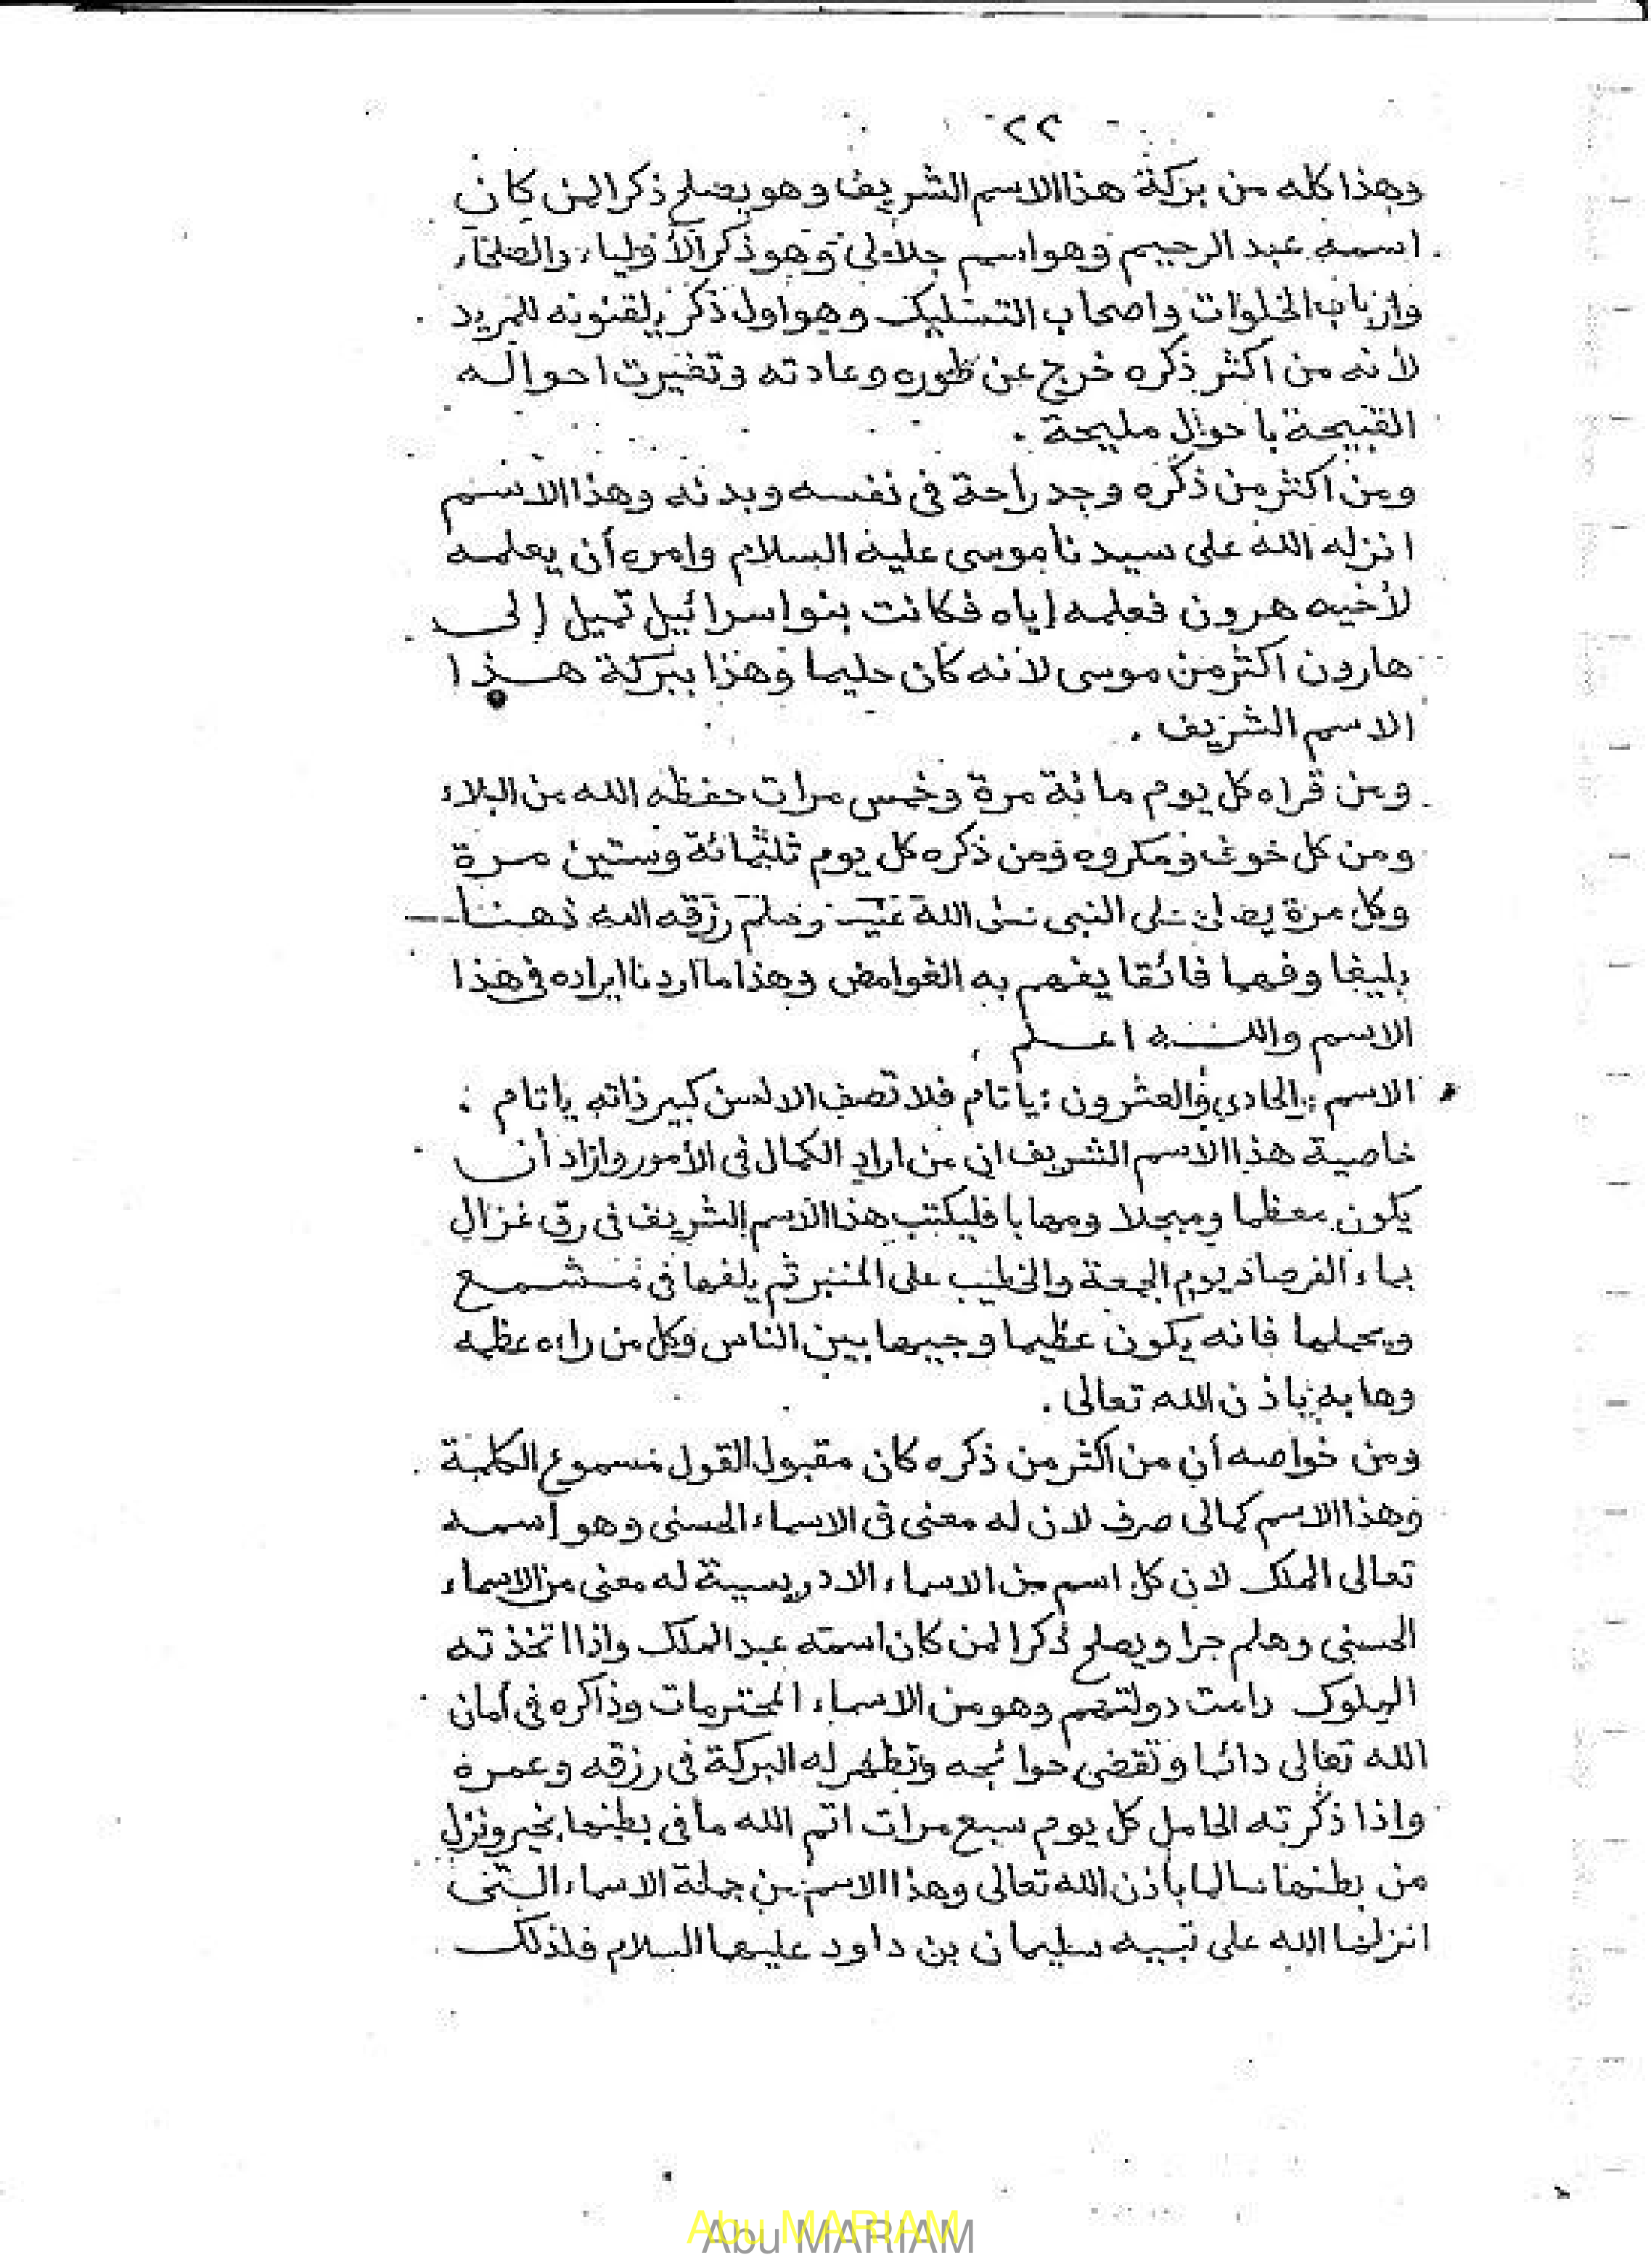 ٢٢
وهذا كله من بركة هذا الاسم الشريف وهو يصلح ذكرا لمن كان
اسمه عبد الرحيم وهو اسم جلالى وهو ذكر الأولياء والصلحاء
وارباب الخلوات واصحاب التسليك وهو اول ذكر يلقنونه للمريد
لأنه من اكثر ذكره خرج عن طوره وعادته وتغيرت احواله
القبيحة باحوال مليحة .
ومن اكثر من ذكره وجد راحة فى نفسه وبدنه وهذا الاسم
انزله الله على سيدنا موسى عليه السلام وامره أن يعلمه
لأخيه هرون فعلمه إياه فكانت بنو اسرائيل تميل إلى
هارون اكثر من موسى لانه كان حليما وهذا ببركة هذا
الاسم الشريف .
ومن قراه كل يوم مائة مرة وخمس مرات حفظه الله من البلاء
ومن كل خوف ومكروه ومن ذكره كل يوم ثلثمائة وستين مرة
وكل مرة يصلى على النبى صلى الله عليه وسلم رزقه الله ذهنا
بليغا وفهما فائقا يفهم به الغوامض وهذا ما اردنا ايراده فى هذا
الاسم والله اعلم .
* الاسم الحادى والعشرون : ياتام فلا تصف الالسن كبير ذاته ياتام :
خاصية هذا الاسم الشريف ان من اراد الكمال فى الأمور واراد أن
يكون معظما ومبجلا ومهابا فليكتب هذا الاسم الشريف فى رق غزال
بماء الفرصاد يوم الجمعة والخطيب على المنبر ثم يلفها فى مشمع
ويحملها فانه يكون عظيما وجيها بين الناس وكل من راءه عظمه
وهابه باذن الله تعالى .
ومن خواصه أن من اكثر من ذكره كان مقبول القول مسموع الكلمة
وهذا الاسم كمالى صرف لان له معنى فى الاسماء الحسنى وهو اسمه
تعالى الملك لان كل اسم من الاسماء الادريسية له معنى من الاسماء
الحسنى وهلم جرا ويصلح ذكرا لمن كان اسمه عبد الملك واذا اتخذته
الملوك دامت دولتهم وهو من الاسماء المحترمات وذاكره فى أمان
الله تعالى دائما وتقضى حوائجه وتظهر له البركة فى رزقه وعمره
واذا ذكرته الحامل كل يوم سبع مرات اتم الله ما فى بطنها بخير ونزل
من بطنها سالما بأذن الله تعالى وهذا الاسم من جملة الاسماء التى
انزلها الله على نبيه سليمان بن داود عليهما السلام فلذلك
Abu MARIAM